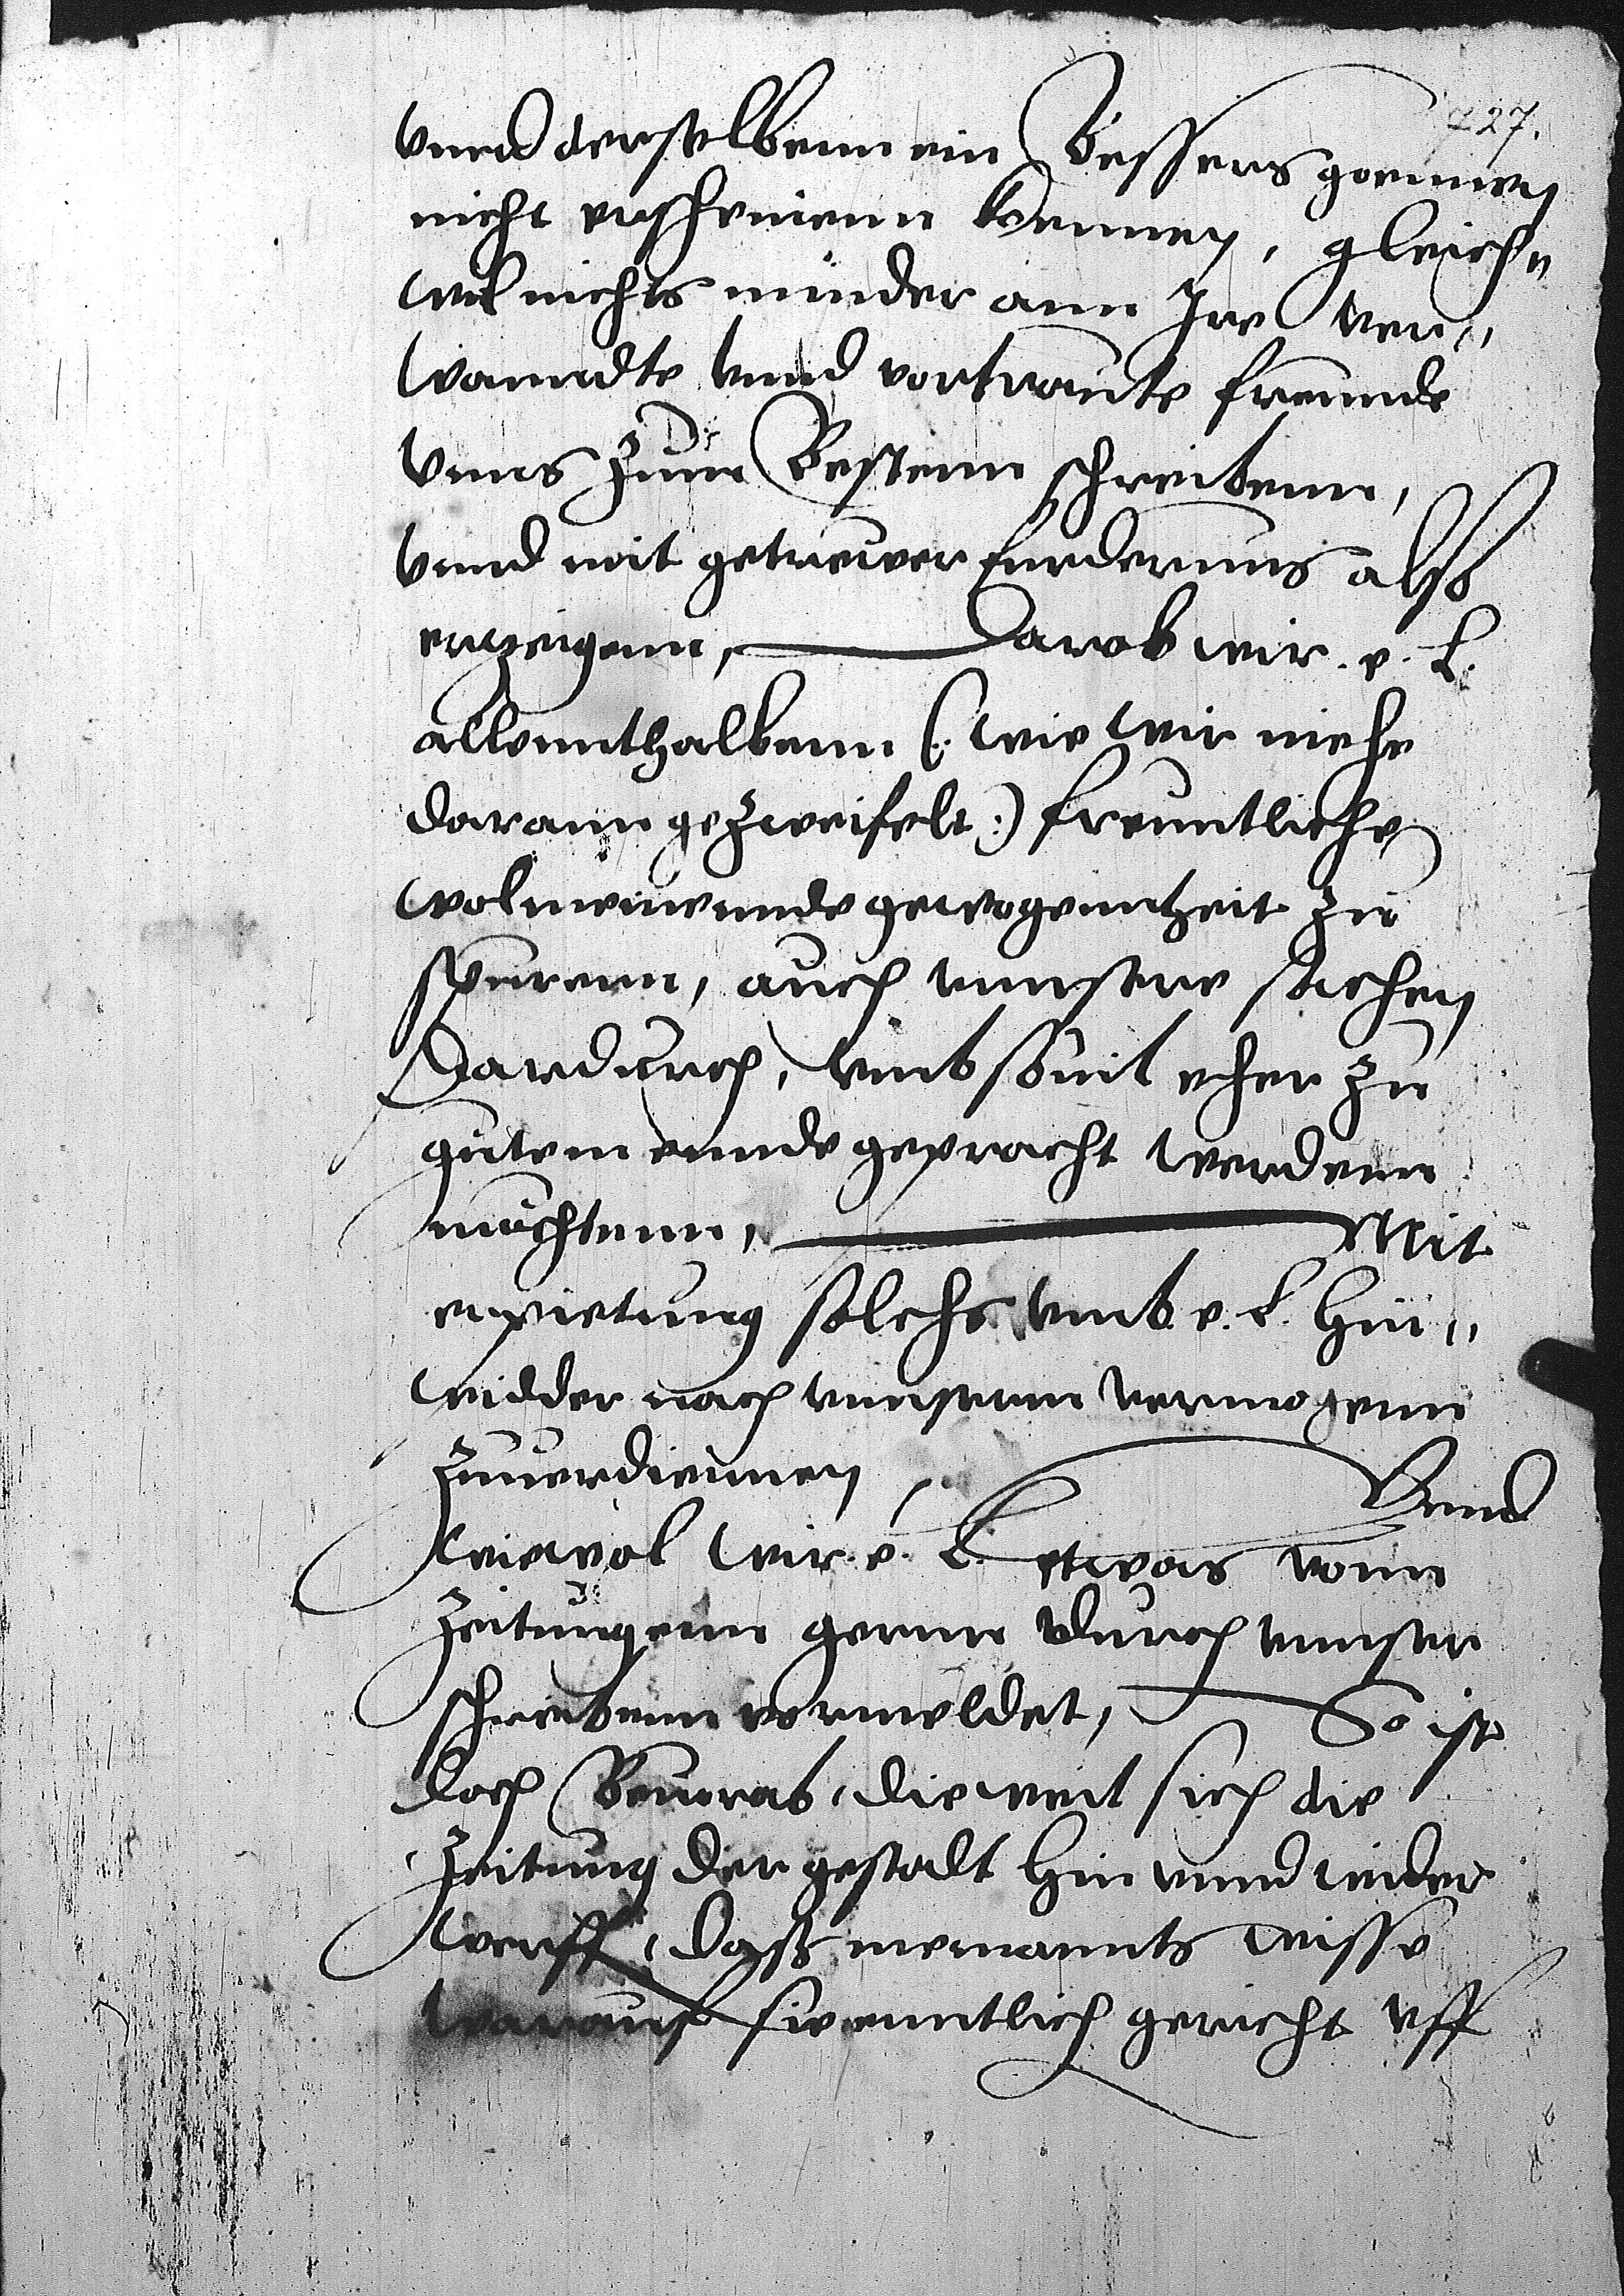 227.
vnnd derselbenn ein Bessers gonnen
nicht erscheinenn konnen, gleich„
wol nichts minder ann Jre ver„
wanndte vnnd vortraute freunde
vnns zum Bestenn schreibenn,
vnnd mit getreuer furderung also
erzeigenn, Darob wir e. L.
allennthalbenn (: wie wir nicht
darann gezweifelt :) freuntliche
wolmeinennde gewogennheit zu
spurenn, auch vnnsere sachen
Dardurch, vmb souil eher zu
gutem ennde gepracht werdenn
möchtenn, Mit
erpietung solchs vmb e. L. hin„
widder nach vnnserm vermogenn
zuuerdiennen Vnnd
wiewol wir e. L. etwas vonn
Zeitungenn gernn durch vnnser
schreibenn vermeldet, So ist
doch Beuorab, die weil sich die
Zeitung der gestalt hin vnnd wider
werff, dass niemannts wisse
worauf sie enntlich gericht vff